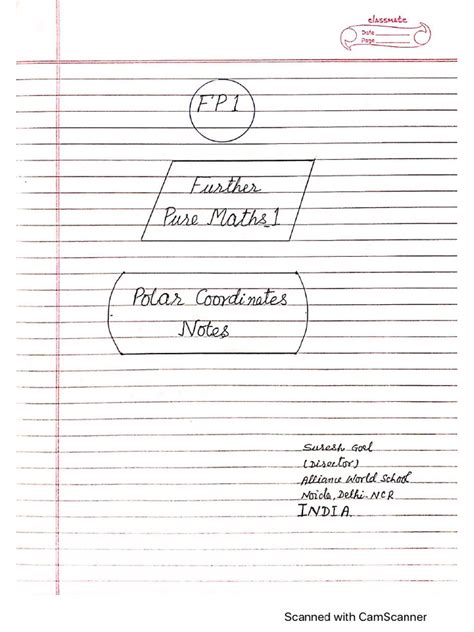 classmate
Date
Page
FP1
Further
Pure Maths_1
Polar Coordinates
Notes
Suresh Goel
(Director)
Alliance World School
Noida, Delhi-NCR
INDIA
Scanned with CamScanner